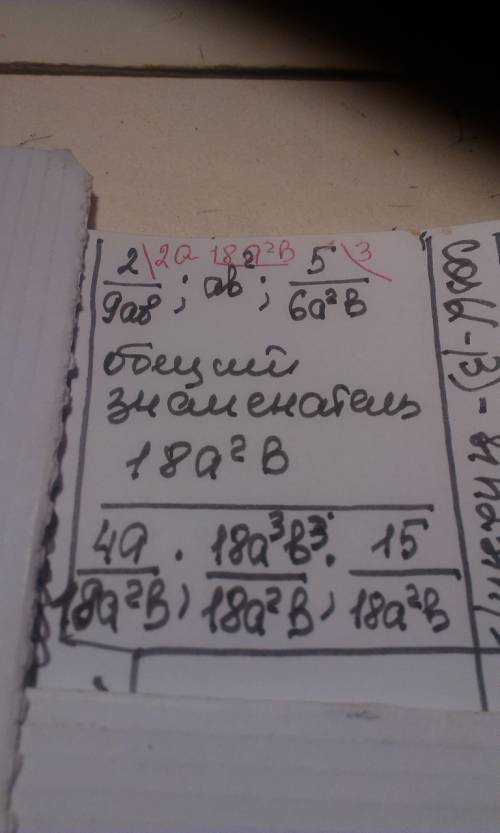 2/9ab \2a ; ab² 18a²b ; 5/6a²b \3
общий
знаменатель
18a²b
4a/18a²b ; 18a³b³/18a²b ; 15/18a²b